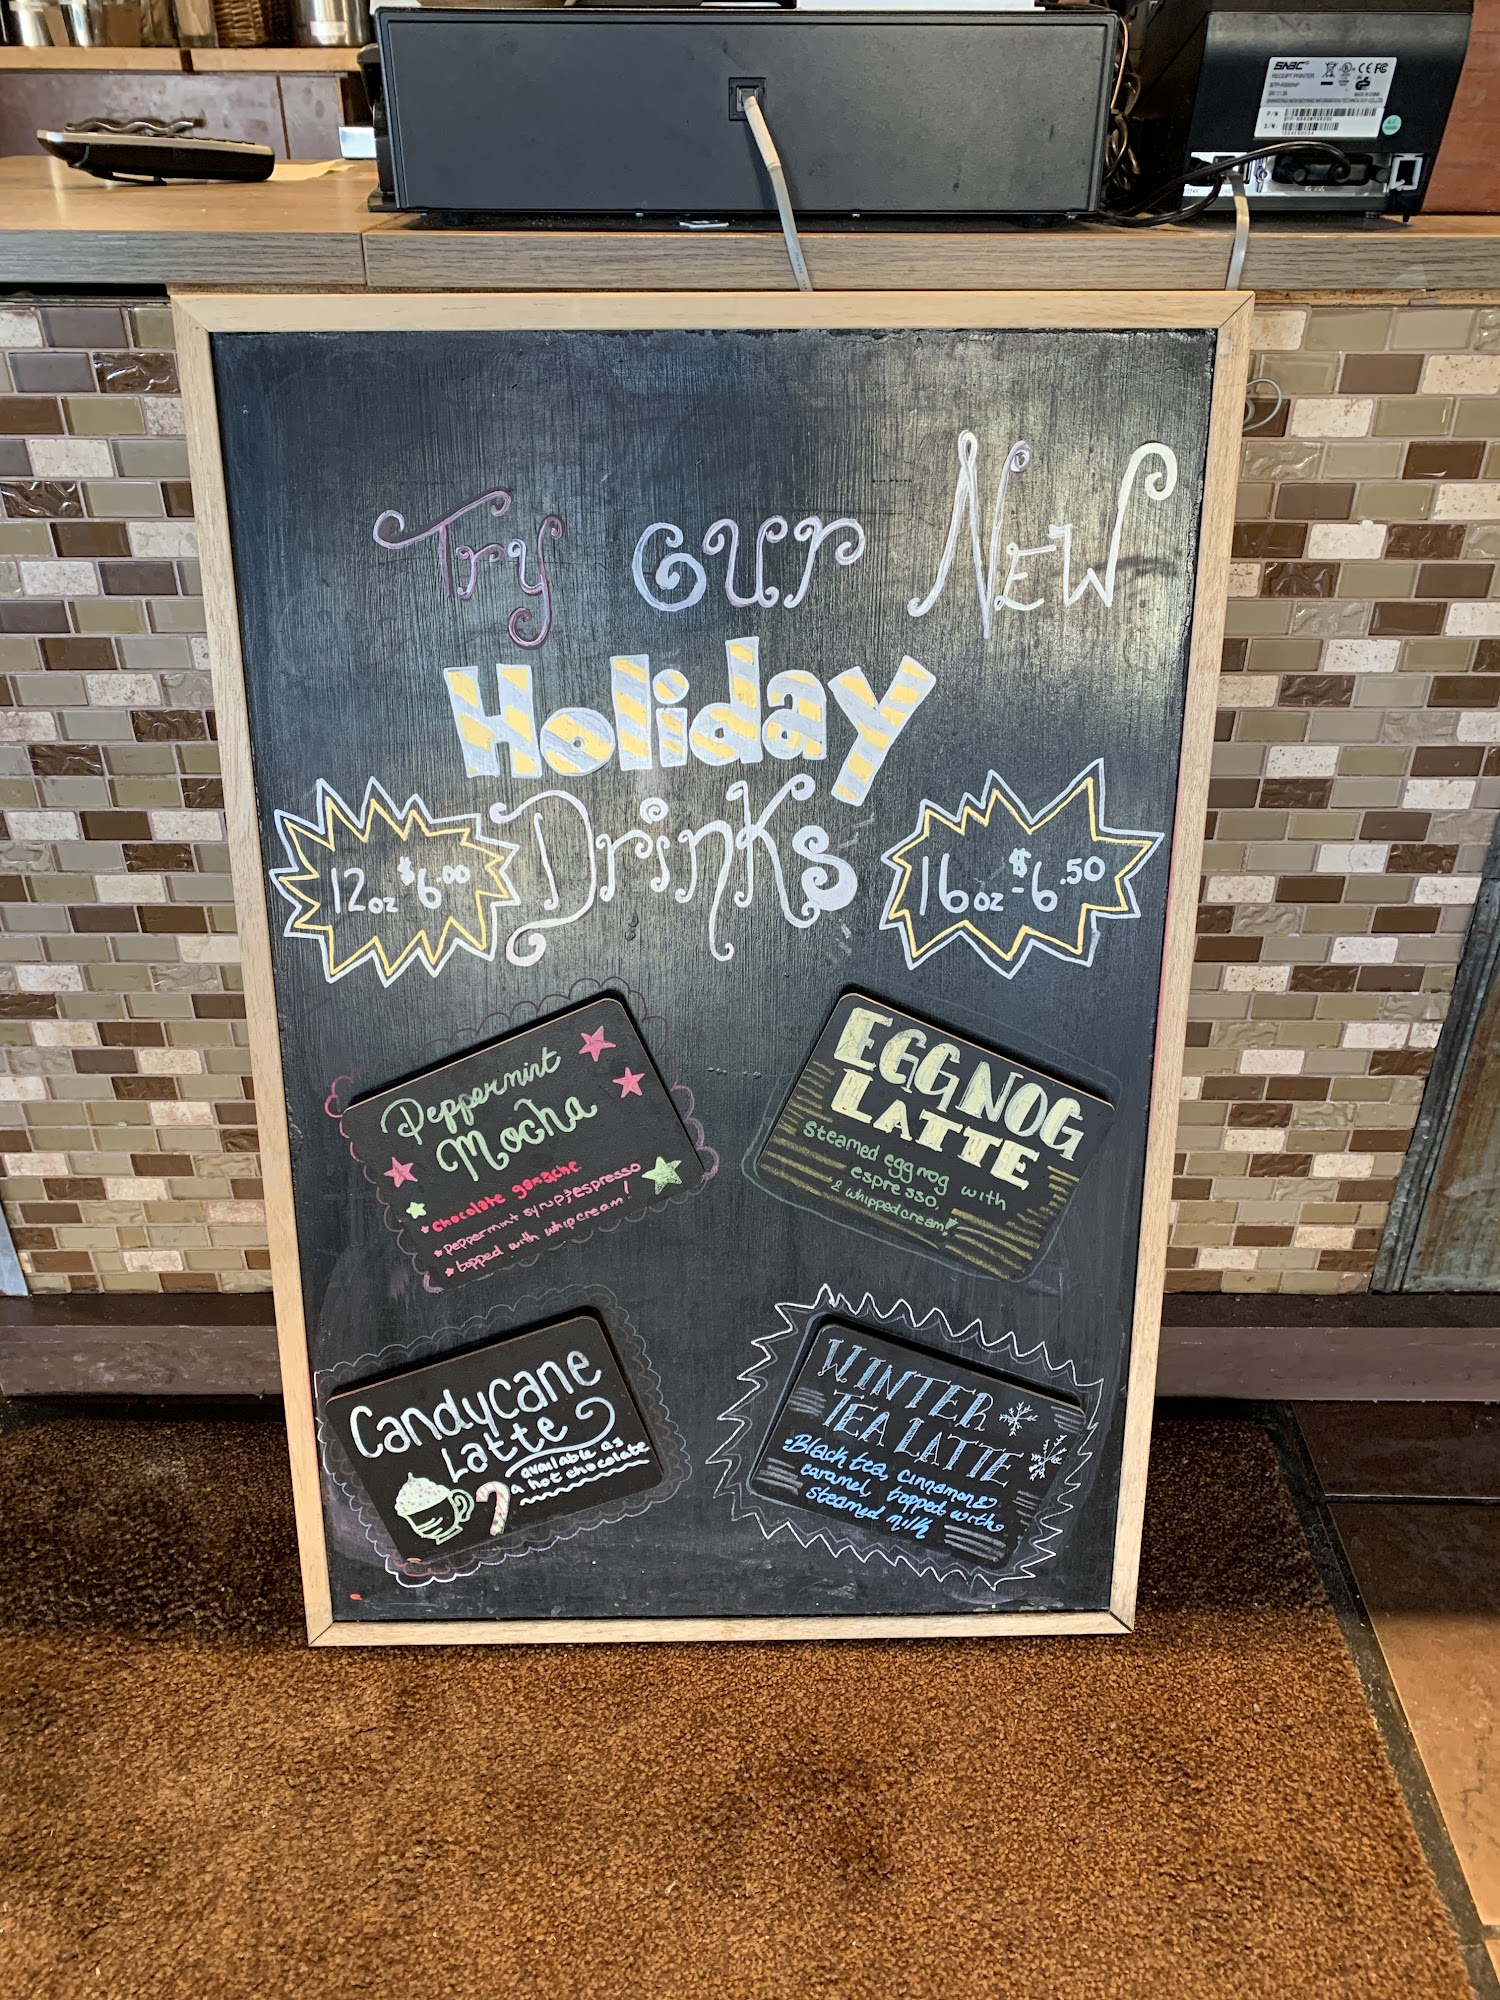 SNBC
RECEIPT PRINTER
P/N:
S/N:
Try our New
Holiday
Drinks
12oz $6.00
16oz $6.50
Peppermint
Mocha
chocolate ganache
peppermint syrup & espresso
topped with whip cream!
EGGNOG
LATTE
steamed eggnog with
espresso,
& whipped cream!
CandyCane
Latte
available as
a hot chocolate
WINTER
TEA LATTE
Black tea, cinnamon &
caramel, topped with
steamed milk